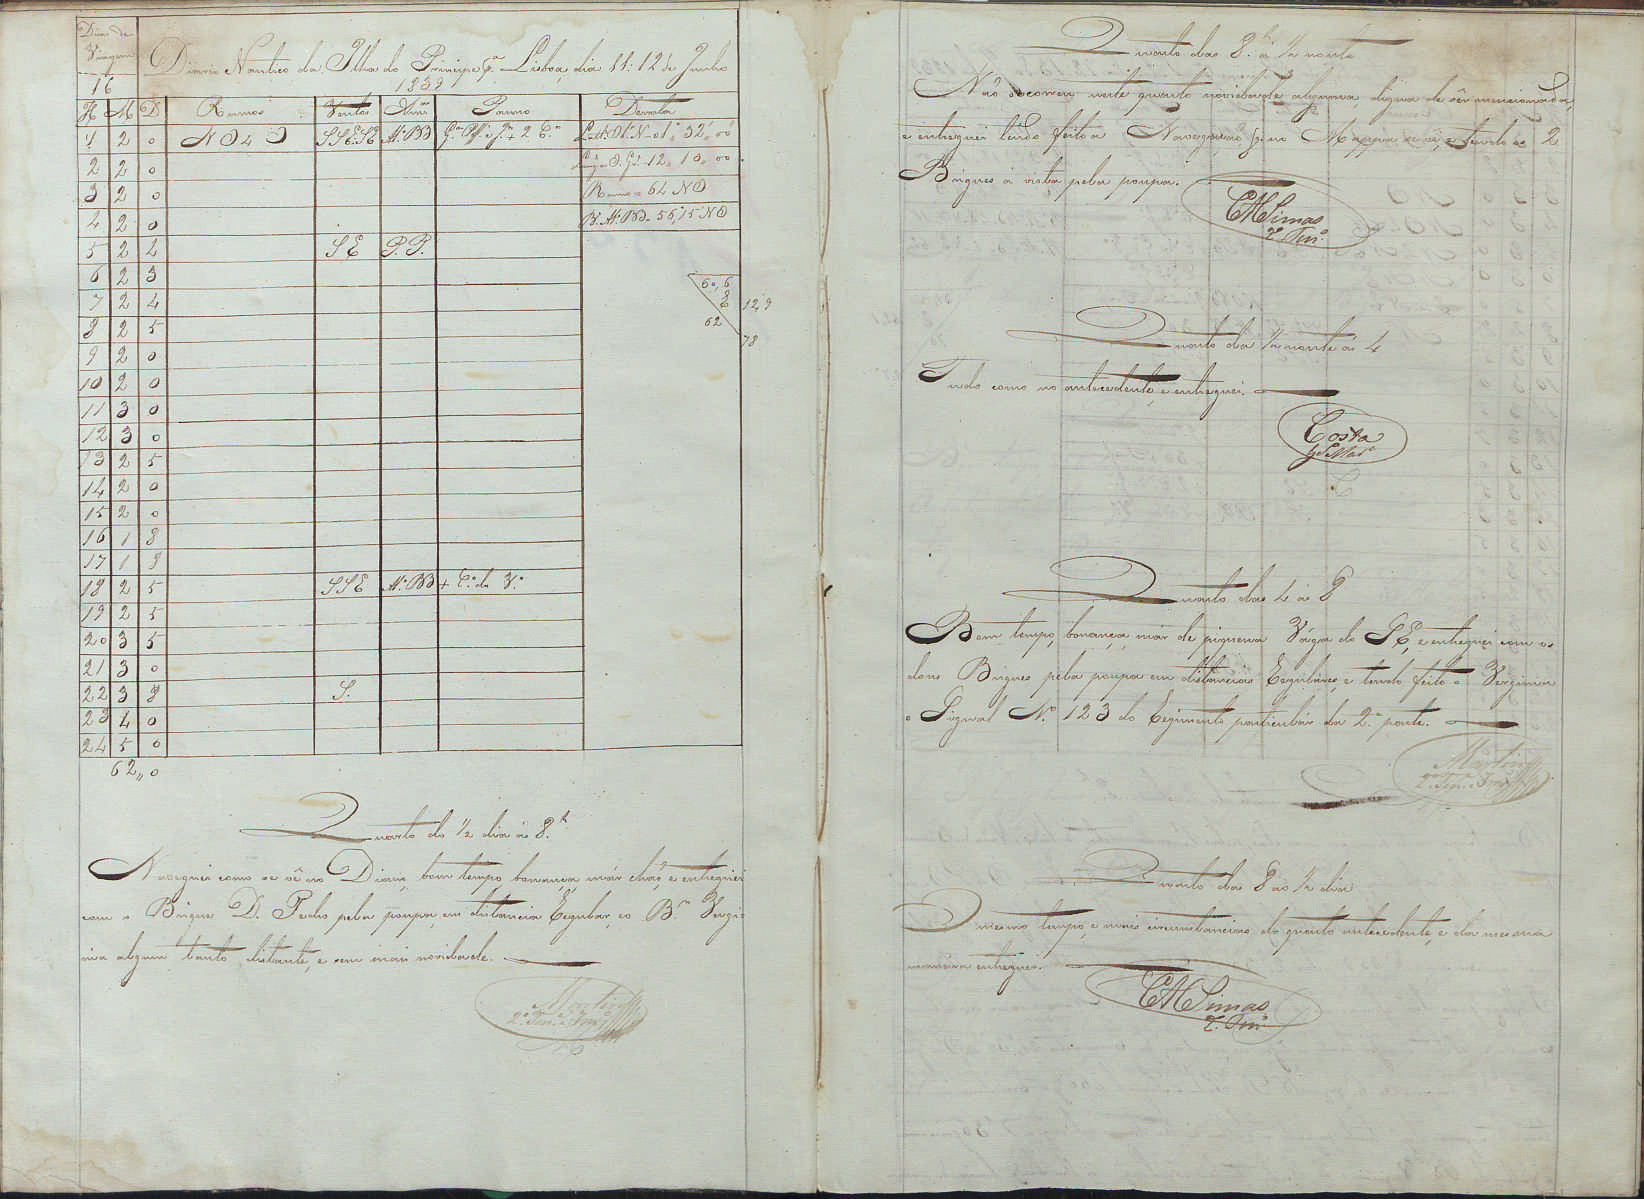 Dias de
Viagem
16
Diario Nautico da Ilha do Principe pa. Lisboa, dia 11: 12 de Junho
1839
H M D Rumos Ventos Am Panno Derrota
1 2 0 NO4O SSE:SE At: BB
2 2 0
3 2 0 Rumo = 64 NO
4 2 0 56,15 NO
5 2 2 SE P. P.
6 2 3 60,6
7 2 4 8 12,9
8 2 5 62
9 2 0 78
10 2 0
11 3 0
12 3 0
13 2 5
14 2 0
15 2 0
16 1 8
17 1 8
18 2 5 SSE At: BB + Ca. da Va.
19 2 5
20 3 5
21 3 0
22 3 8 S.
23 4 0
24 5 0
62,,0
Quarto do 1/2 dia ás 8.h
Naveguei como se vê no Diario, bom tempo bonança, már chão, e entreguei
com o Brigue D. Pedro pela poupa, em distancia Regular, e o B.m Virgi
nia algum tanto distante, e sem mais novidade.
Martins
2º Ten. e Imo
Quarto das 8.h á 1/2 noute
Não ocorreu neste quarto novidade alguma digna de sêr mencionada,
e entreguei tendo feito a Navegação q. no Mappa se vê, e tendo os 2
Brigues á vista pela poupa.
CMSimas
2. Ten.
Quarto da 1/2 noute ás 4
Tudo como no antecedente, e entreguei.
Costa
G Mar.
Quarto das 4 ás 8
Bom tempo, bonança, mar de piquena Vága do SE, e entreguei com os
dous Brigues pela poupa em distancias Regulares, e tendo feito o Verginia
o Signal Nº. 123 do Regimento particular da 2.ª parte.
Martins
2º Ten. e Imo
Quarto das 8 ao 1/2 dia
O mesmo tempo, e mais circumstancias do quarto antecedente, e da mesma
maneira entreguei.
CMSimas
2. Ten.